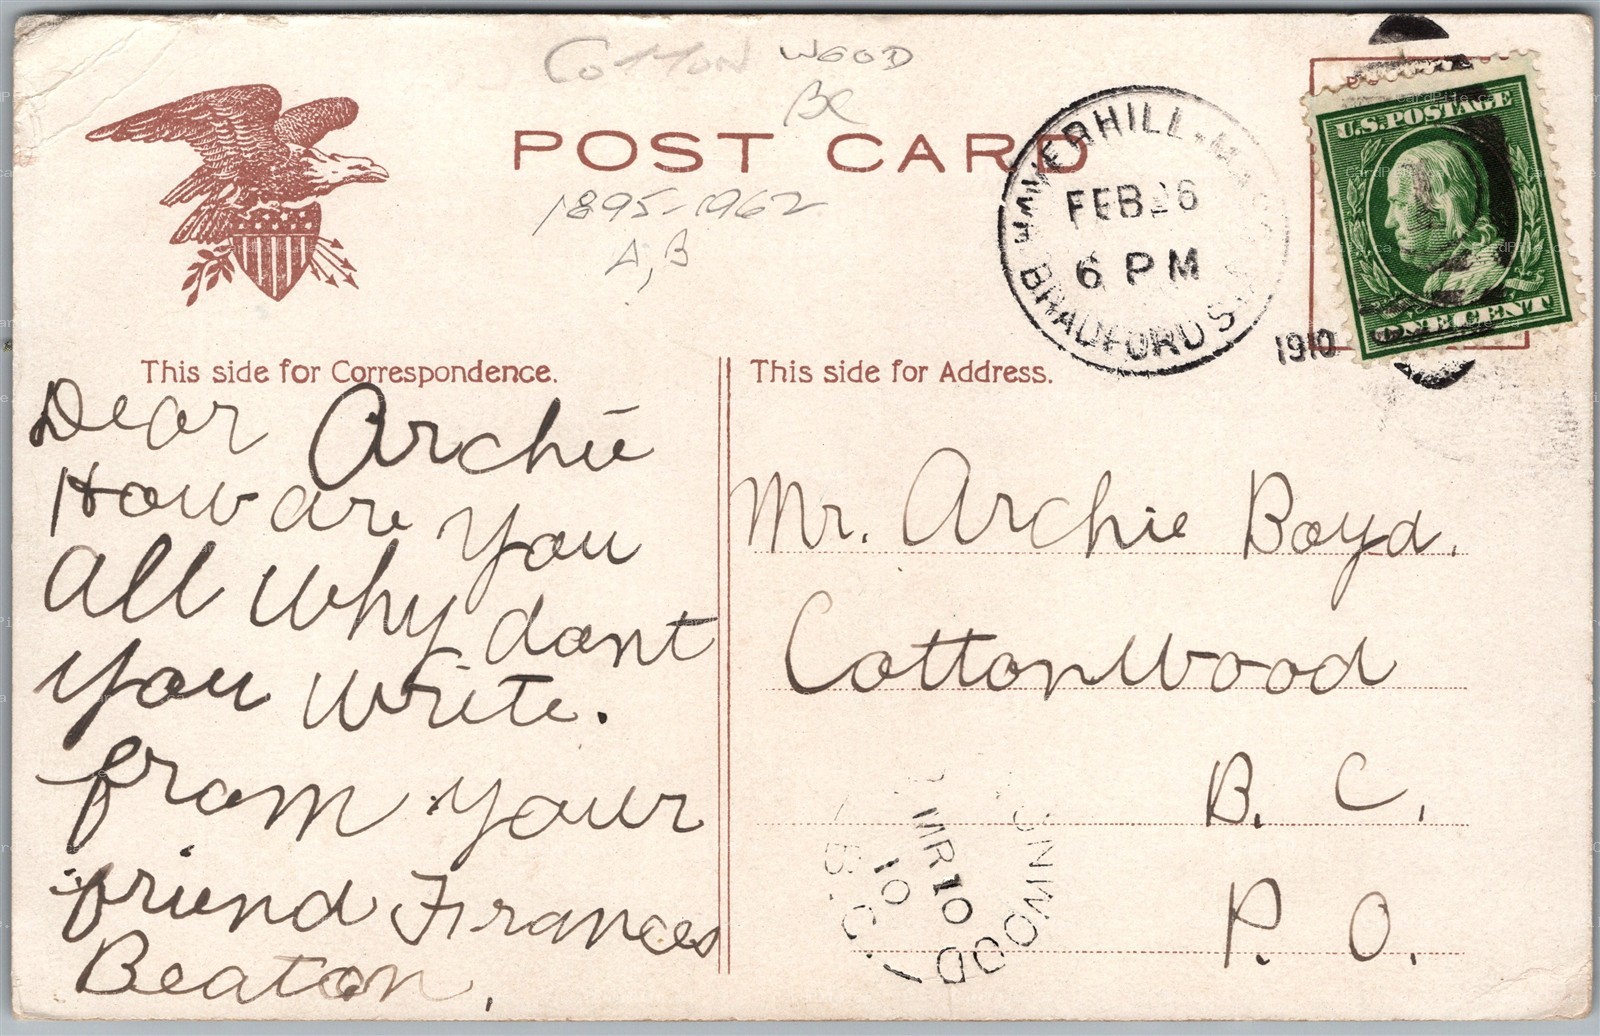 Cotton WOOD
BC
POST CARD
1895-1962
A, B
HAVERHILL-MASS.
FEB 26
6 PM
BRADFORD STA.
1910
U.S. POSTAGE
ONE CENT
This side for Correspondence.
Dear Archie
How are you
all why dont
you write.
from your
friend Frances
Beaton.
This side for Address.
Mr. Archie Boyd.
CottonWood
B. C.
P. O.
ONWOOD
MR 10
10
B.C.